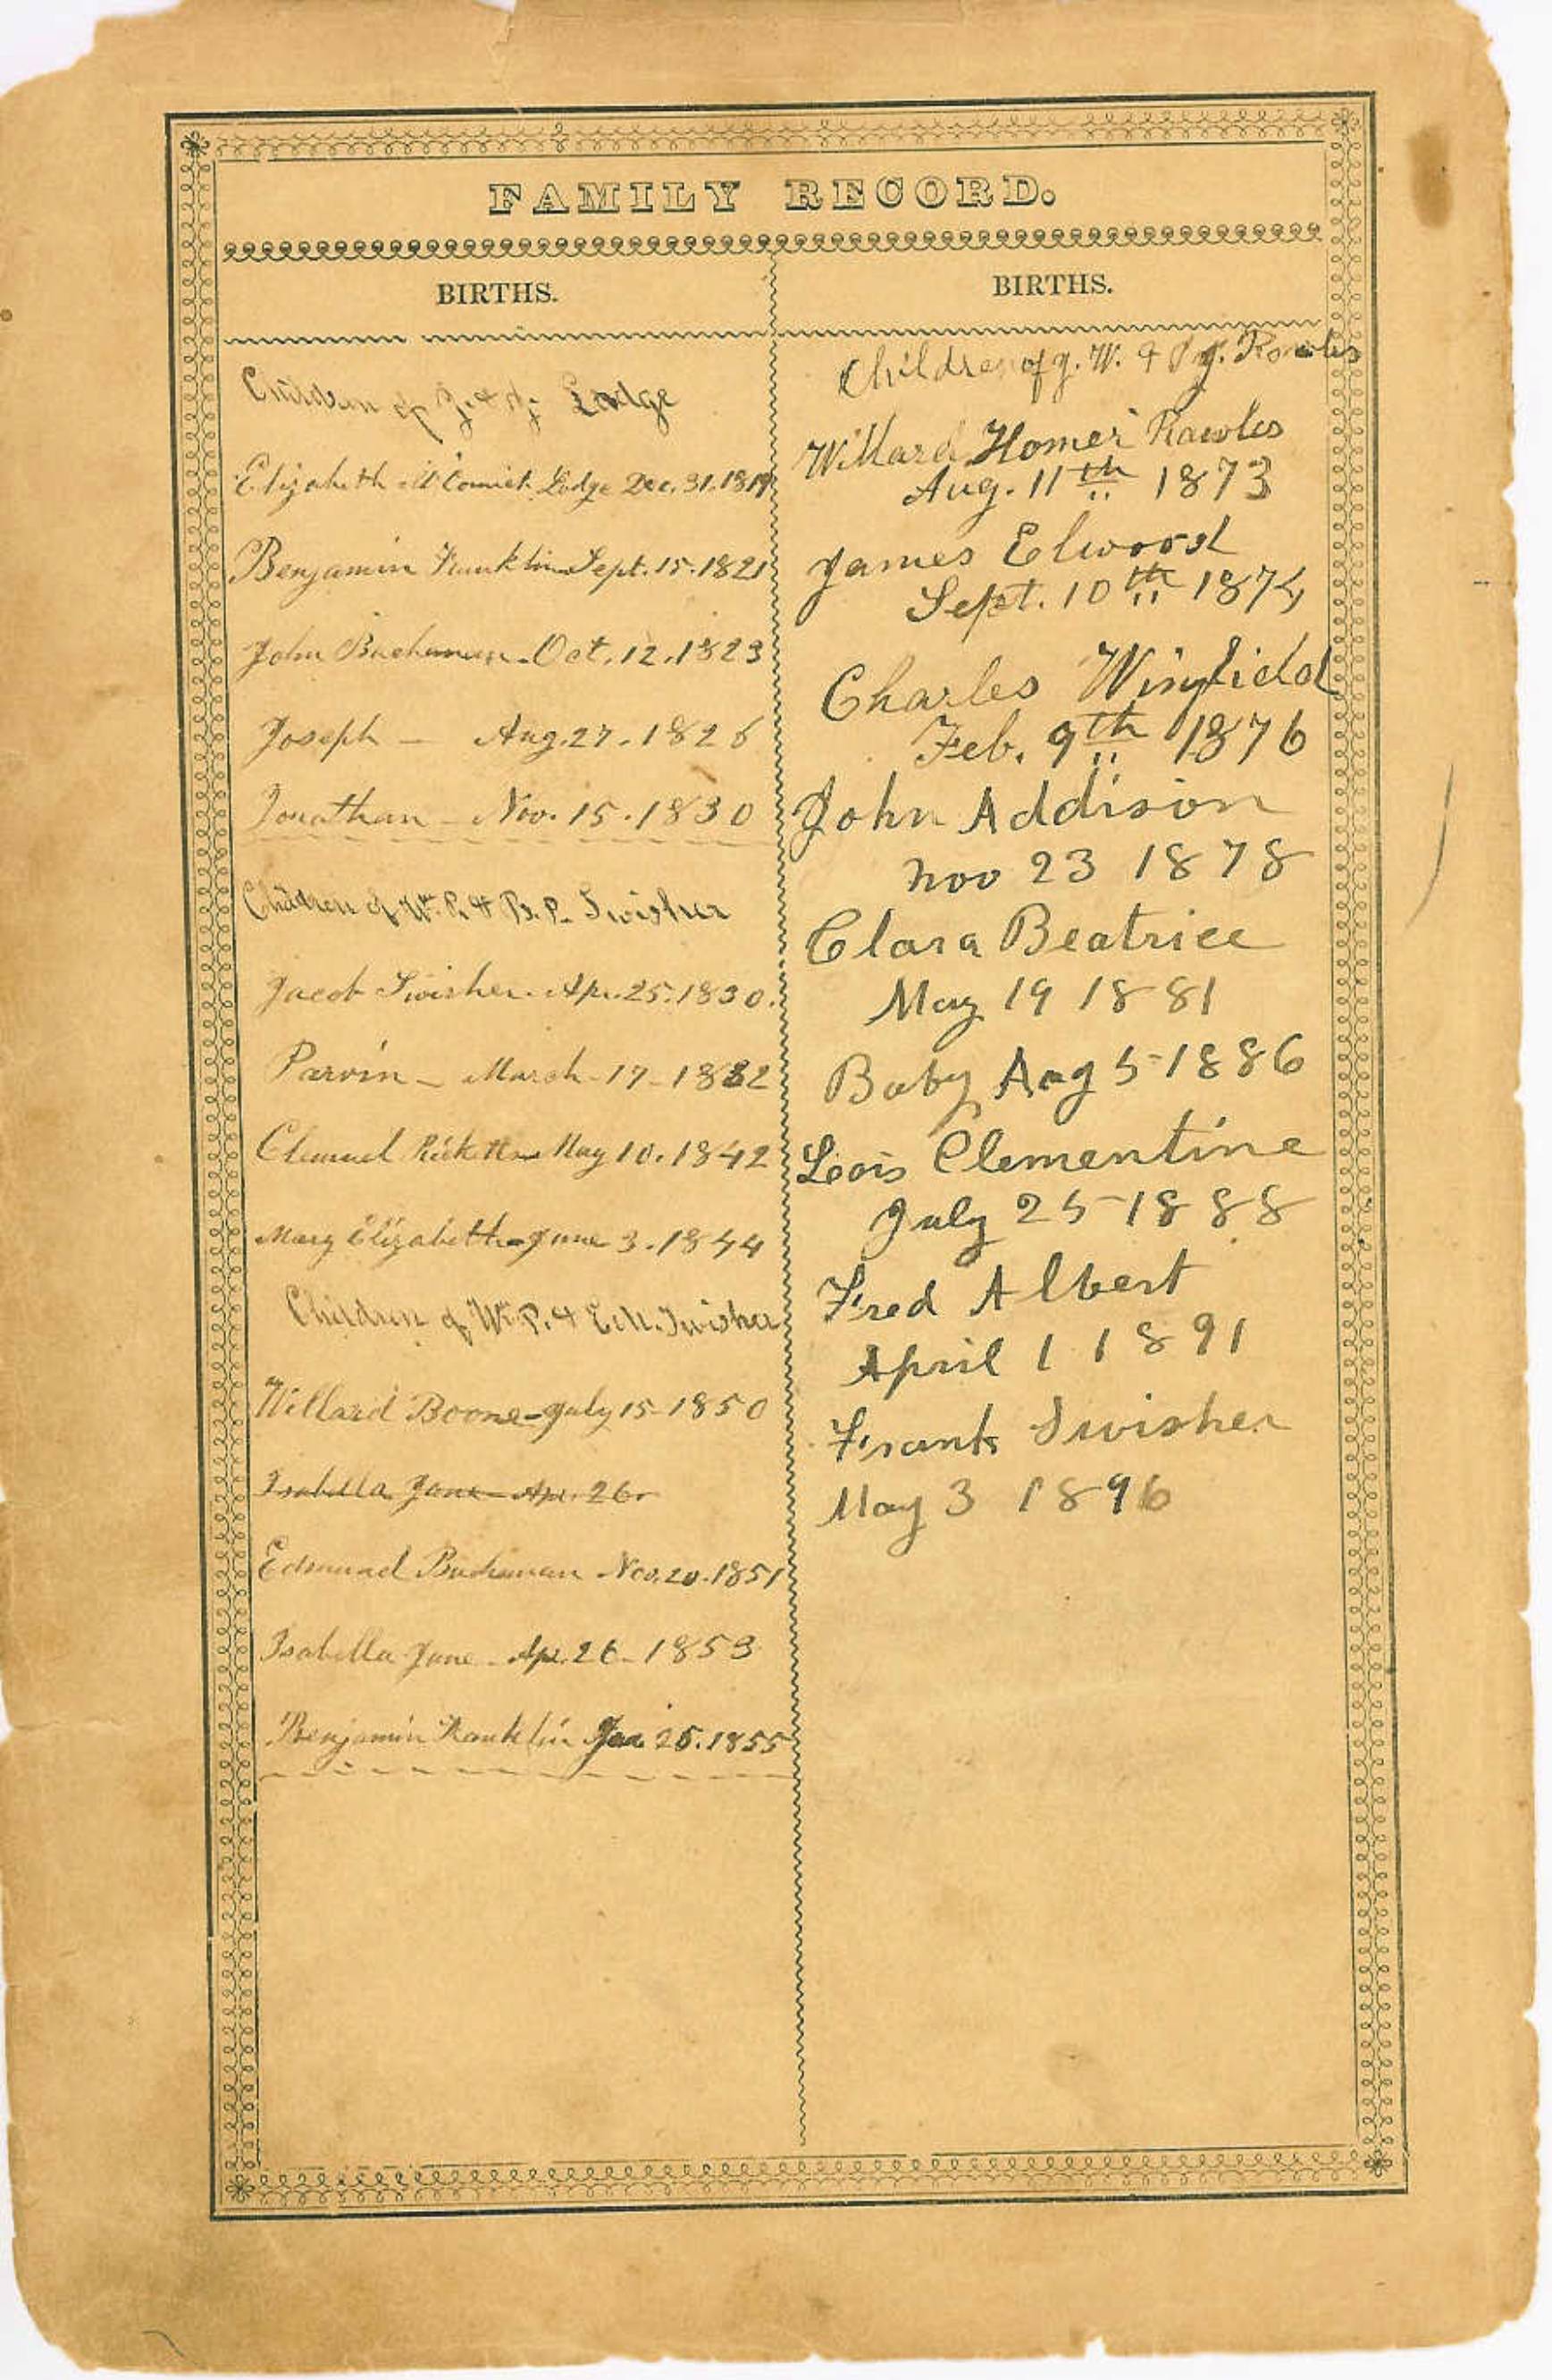 FAMILY RECORD.
BIRTHS.
Children of J. & Lodge
Elizabeth Lodge Dec. 31. 1819
Benjamin Franklin Sept. 15. 1821
John Buchanan - Oct. 12. 1823
Joseph - Aug. 27. 182
Jonathan - Nov. 15. 1830
Children of Wm. P. & B. P. Swisher
Jacob Swisher. Apr. 25. 1830.
Parvin - March - 17 - 1832
May 10. 1842
Mary Elizabeth - June 3. 1844
Children of Wm. P. & E. M. Swisher
Willard Boone - July 15 - 1850
Isabella Jane - Apr. 26
Edmund Buchanan Nov. 20. 1851
Isabella Jane - Apr. 26 - 1853
Benjamin Franklin Jan 25. 1855
BIRTHS.
Children of J. W. & J. Rowles
Willard Homer Rawles
Aug. 11th 1873
James Elwood
Sept. 10th 1874
Charles Winfield
Feb. 9th 1876
John Addison
Nov 23 1878
Clara Beatrice
May 19 1881
Baby Aug 5 - 1886
Lois Clementine
July 25 - 1888
Fred Albert
April 1 1891
Frank Swisher
May 3 1896